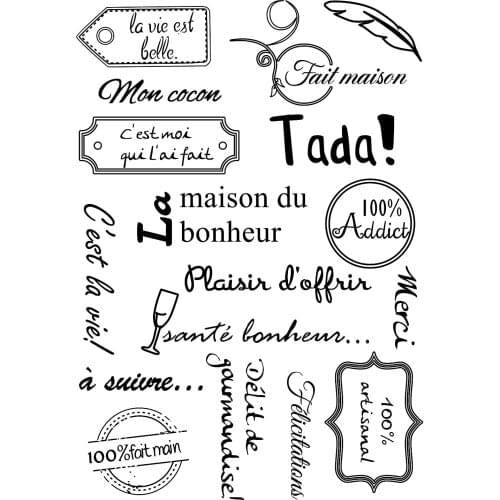 la vie est
belle.
Fait maison
Mon cocon
C'est moi
qui l'ai fait
Tada!
La
maison du
bonheur
100%
Addict
C'est la vie!
Plaisir d'offrir
Merci
santé bonheur...
à suivre...
Délit de
gourmandise!
Félicitations
100%
artisanal
100% fait main